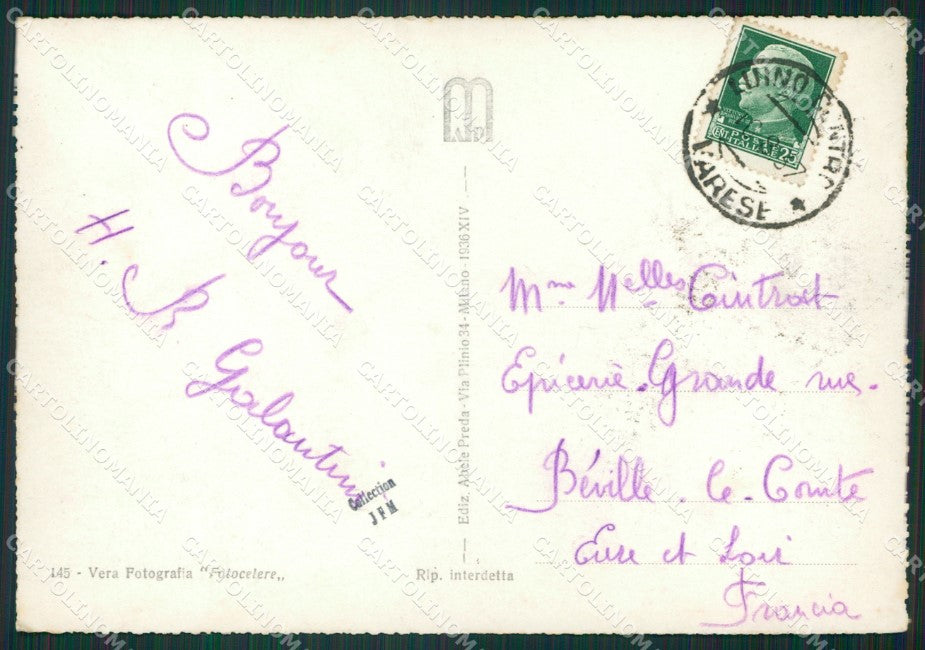 Bonjour
H. B. Galantini
Collection
JPM
145 - Vera Fotografia "Fotocelere„
Rip. interdetta
Ediz. Abele Preda - Via Plinio 34 - Milano - 1936 XIV
POSTE
CENT. ITALIANE 25
LUINO CENTRO
* VARESE *
Mme Melles Cintrat
Epicerie. Grande rue.
Béville. le. Comte
Eure et Loir
Francia
CARTOLINOMANIA